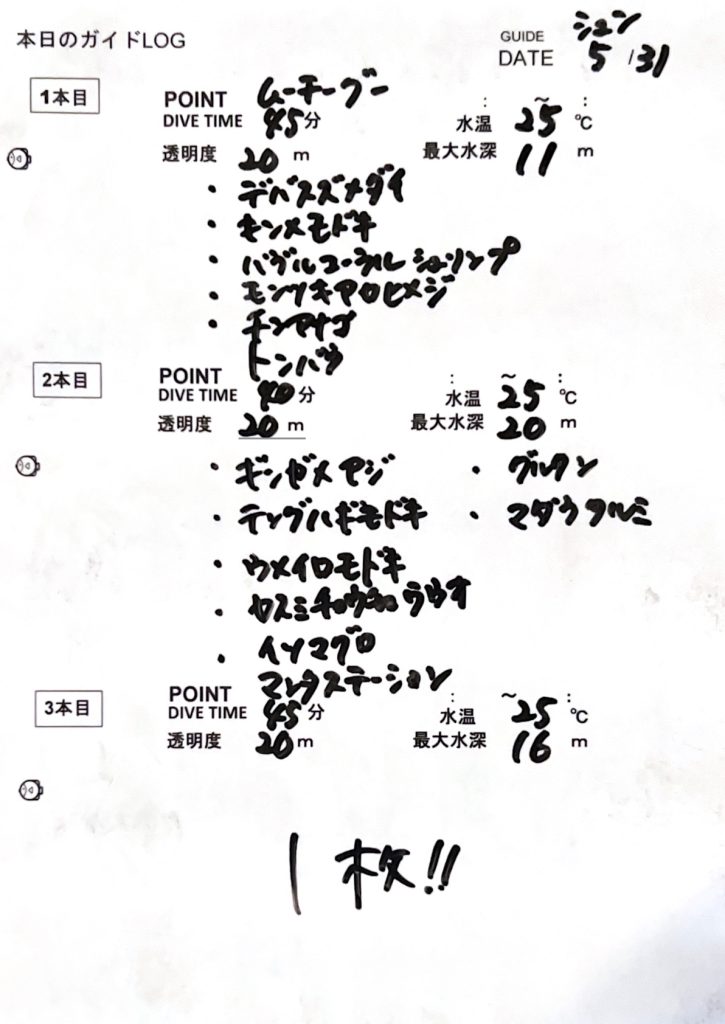 本日のガイドLOG
GUIDE シュン
DATE 5/31
1本目
POINT ムーチーグー
DIVE TIME 45分
: ~ :
水温 25℃
透明度 20 m
最大水深 11 m
・デバスズメダイ
・キンメモドキ
・バブルコーラルシュリンプ
・モンツキアカヒメジ
・チンアナゴ
2本目
POINT トンバラ
DIVE TIME 40分
: ~ :
水温 25℃
透明度 20 m
最大水深 20 m
・ギンガメアジ ・グルクン
・テングハギモドキ ・マダラタルミ
・ウメイロモドキ
・カスミチョウチョウウオ
・イソマグロ
3本目
POINT マンタステーション
DIVE TIME 45分
: ~ :
水温 25℃
透明度 20 m
最大水深 16 m
1枚!!